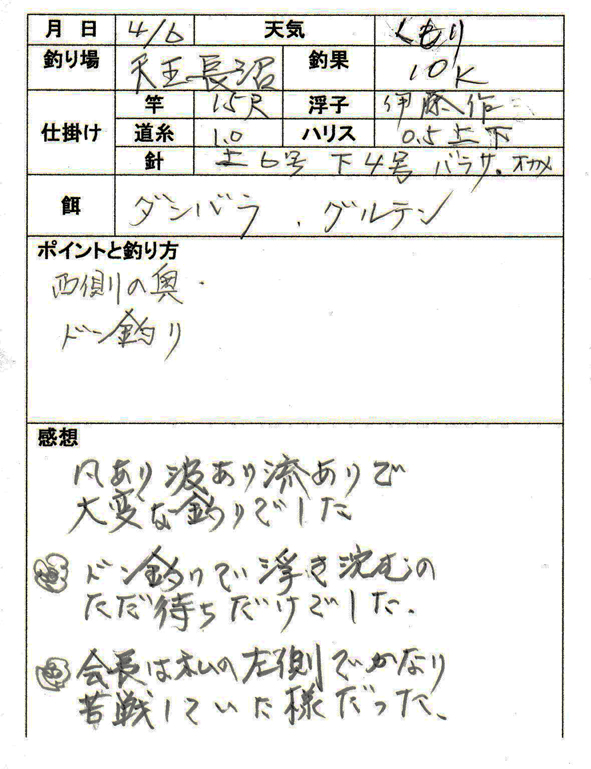 月 日 4/6 天気 くもり
釣り場 天王長沼 釣果 10K
仕掛け 竿 15尺 浮子 伊藤作
道糸 1.0 ハリス 0.5上下
針 上6号 下4号 バラサ。オカメ
餌 ダンバラ . グルテン
ポイントと釣り方
西側の奥.
ドン釣り
感想
风あり波あり流ありで
大変な釣りでした
ドン釣りで浮き沈むの
ただ待ちだけでした.
会長は私の左側でかなり
苦戦していた様だった、